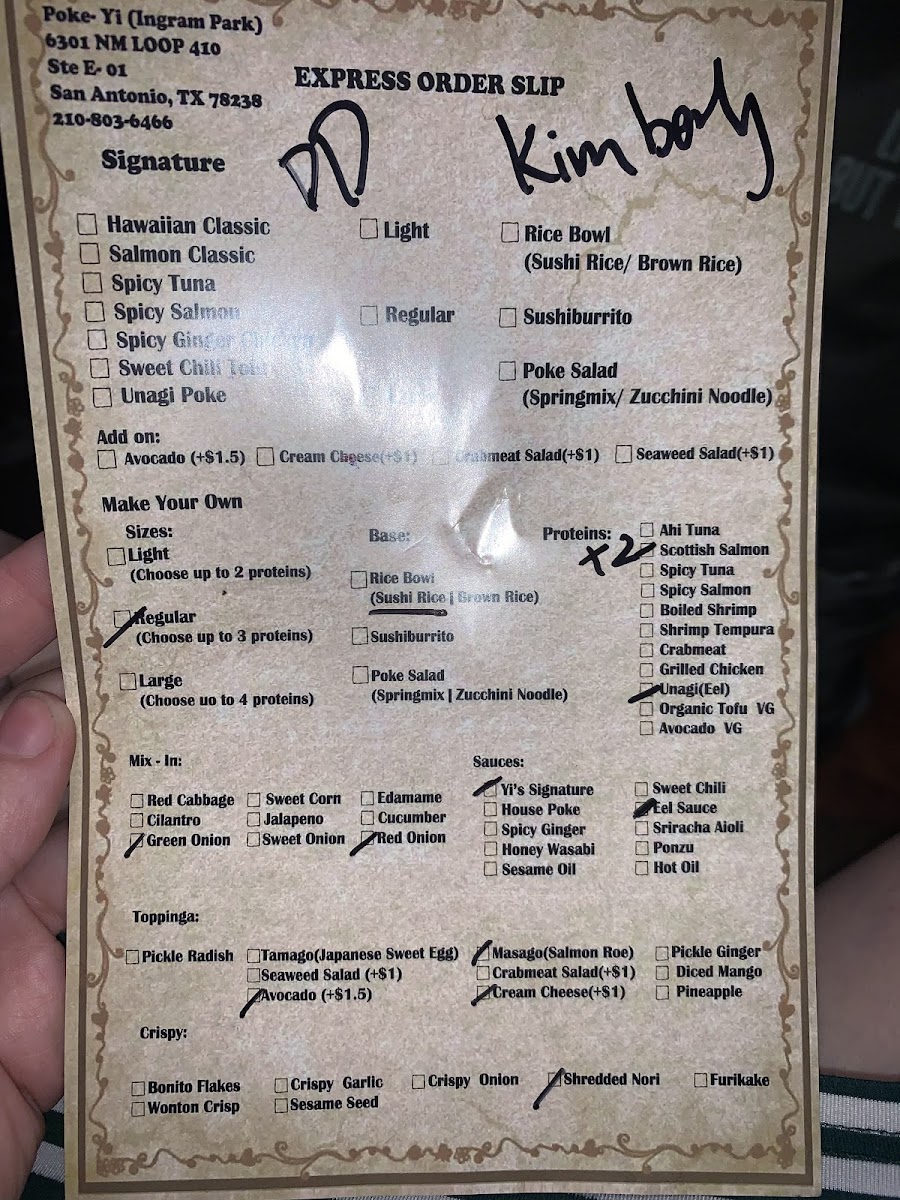 Poke- Yi (Ingram Park)
6301 NM LOOP 410
Ste E- 01
San Antonio, TX 78238
210-803-6466
EXPRESS ORDER SLIP
Kimberly
Signature
Hawaiian Classic
Salmon Classic
Spicy Tuna
Spicy Salmon
Spicy Ginger Chicken
Sweet Chili Tofu
Unagi Poke
Light
Regular
Rice Bowl
(Sushi Rice/ Brown Rice)
Sushiburrito
Poke Salad
(Springmix/ Zucchini Noodle)
Add on:
Avocado (+$1.5) Cream Cheese(+$1) Crabmeat Salad(+$1) Seaweed Salad(+$1)
Make Your Own
Sizes:
Light
(Choose up to 2 proteins)
Regular
(Choose up to 3 proteins)
Large
(Choose uo to 4 proteins)
Base:
Rice Bowl
(Sushi Rice | Brown Rice)
Sushiburrito
Poke Salad
(Springmix | Zucchini Noodle)
Proteins:
x2
Ahi Tuna
Scottish Salmon
Spicy Tuna
Spicy Salmon
Boiled Shrimp
Shrimp Tempura
Crabmeat
Grilled Chicken
Unagi(Eel)
Organic Tofu VG
Avocado VG
Mix - In:
Red Cabbage Sweet Corn Edamame
Cilantro Jalapeno Cucumber
Green Onion Sweet Onion Red Onion
Sauces:
Yi's Signature Sweet Chili
House Poke Eel Sauce
Spicy Ginger Sriracha Aioli
Honey Wasabi Ponzu
Sesame Oil Hot Oil
Toppinga:
Pickle Radish Tamago(Japanese Sweet Egg) Masago(Salmon Roe) Pickle Ginger
Seaweed Salad (+$1) Crabmeat Salad(+$1) Diced Mango
Avocado (+$1.5) Cream Cheese(+$1) Pineapple
Crispy:
Bonito Flakes Crispy Garlic Crispy Onion Shredded Nori Furikake
Wonton Crisp Sesame Seed